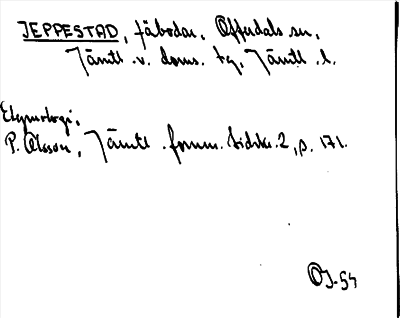 JEPPESTAD, fäbodar, Offerdals sn,
Jämtl. v. doms. tg, Jämtl. l.
Etymologi,
P. Olsson, Jämtl. fornm. tidskr. 2, s. 171.
OJ-54